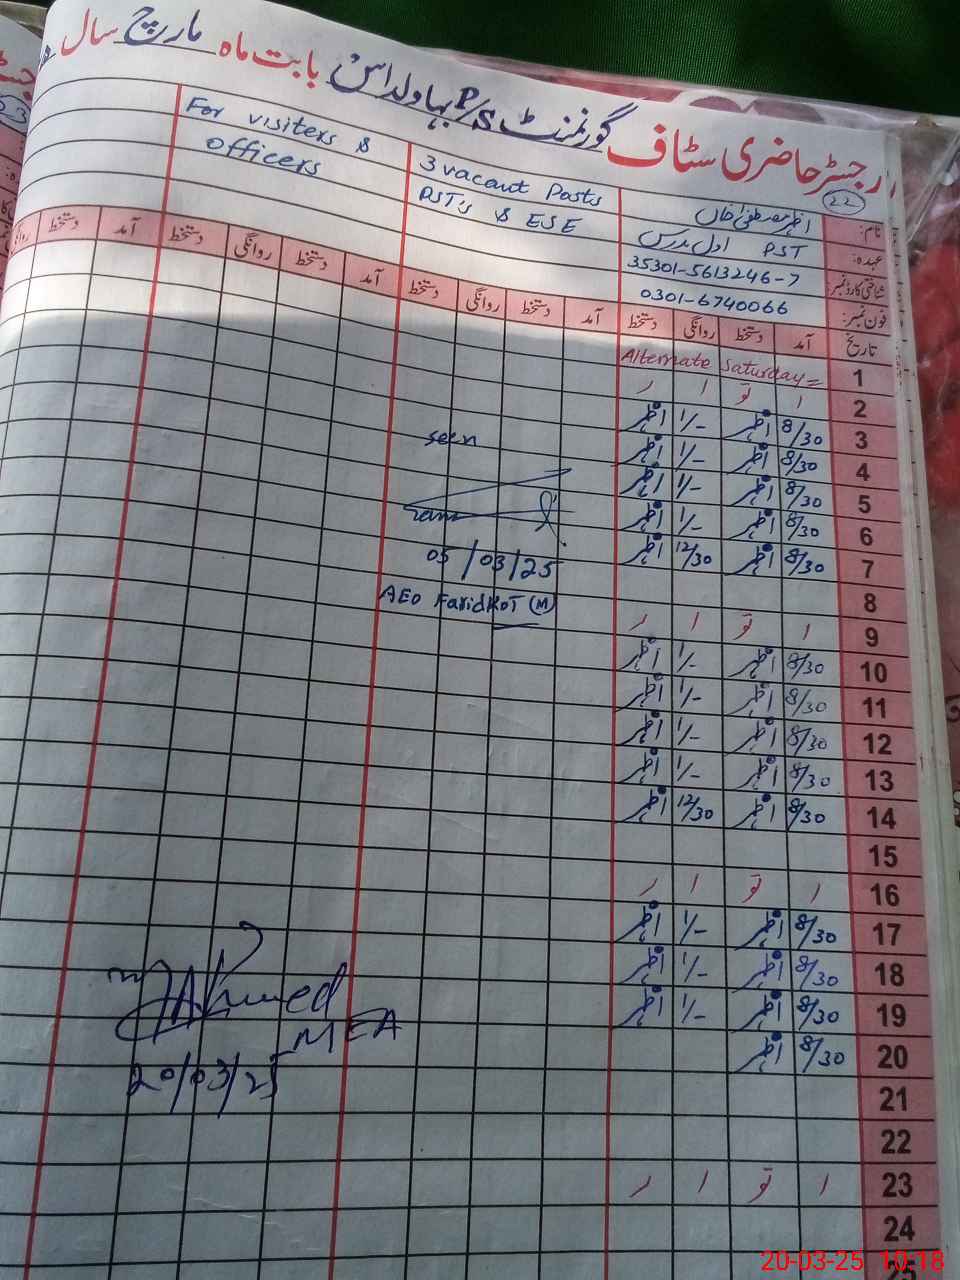 رجسٹر حاضری سٹاف گورنمنٹ P/S بہاولداس بابت ماہ مارچ سال
22
نام: اظہر مصطفیٰ خاں
3 vacant Posts
For visiters &
عہدہ: PST اول مدرس
PST's & ESE
officers
شناختی کارڈ نمبر: 35301-5613246-7
فون نمبر: 0301-6740066
تاریخ آمد دستخط روانگی دستخط آمد دستخط روانگی دستخط آمد دستخط روانگی دستخط آمد دستخط
1 Alternate Saturday =
2 ا تو ا ر
3 8/30 اظہر 1/- اظہر
4 8/30 اظہر 1/- اظہر
5 8/30 اظہر 1/- اظہر
6 8/30 اظہر 1/- اظہر
7 8/30 اظہر 12/30 اظہر
8
9 ا تو ا ر
10 8/30 اظہر 1/- اظہر
11 8/30 اظہر 1/- اظہر
12 8/30 اظہر 1/- اظہر
13 8/30 اظہر 1/- اظہر
14 8/30 اظہر 12/30 اظہر
15
16 ا تو ا ر
17 8/30 اظہر 1/- اظہر
18 8/30 اظہر 1/- اظہر
19 8/30 اظہر 1/- اظہر
20 8/30 اظہر
21
22
23 ا تو ا ر
24
25
seen
05/03/25
AEO FaridKOT (M)
Ahmed
MEA
20/03/25
20-03-25 10:18